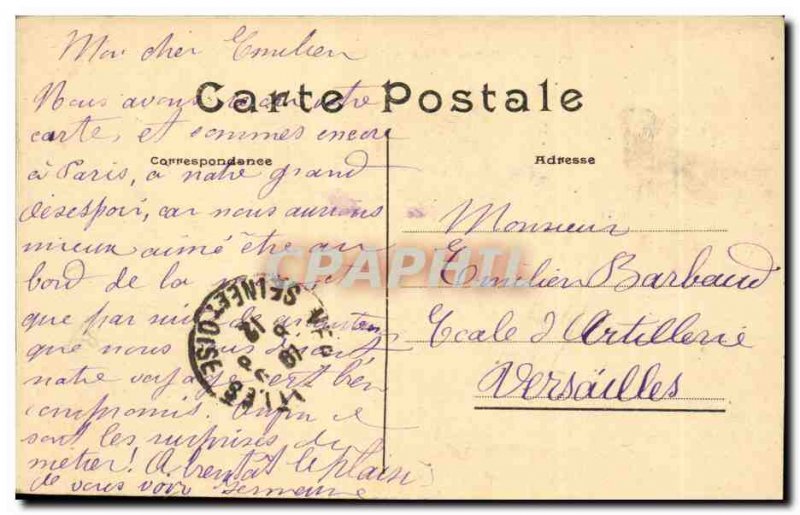 Mon cher Emilien
Carte Postale
Nous avons votre
carte, et sommes encore
Correspondance
Adresse
à Paris, à notre grand
désespoir, car nous aurions
mieux aimé être au
bord de la
que par suite de
que nous
notre voyage est bien
compromis. Enfin ce
sont les surprises du
métier! A bientôt le plaisir
de vous voir Germaine
Monsieur
Emilien Barbaud
Ecole d'Artillerie
Versailles
CPAPHIL
SEINE ET OISE